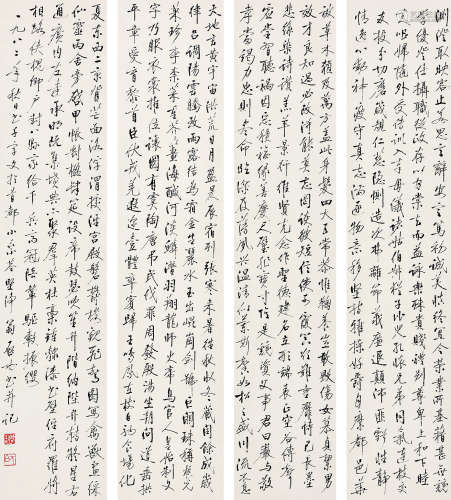 天地玄黃宇宙洪荒日月盈昃辰宿列張寒來暑往秋收冬藏閏餘成歲
律呂調陽雲騰致雨露結為霜金生麗水玉出崑岡劍號巨闕珠稱夜光
菓珍李柰菜重芥薑海鹹河淡鱗潛羽翔龍師火帝鳥官人皇始制文
字乃服衣裳推位讓國有虞陶唐弔民伐罪周發殷湯坐朝問道垂拱
平章愛育黎首臣伏戎羌遐邇壹體率賓歸王鳴鳳在樹白駒食場化
被草木賴及萬方蓋此身髮四大五常恭惟鞠養豈敢毀傷女慕貞潔男
效才良知過必改得能莫忘罔談彼短靡恃己長信使可覆器欲難量墨
悲絲染詩讚羔羊景行維賢克念作聖德建名立形端表正空谷傳聲
虛堂習聽禍因惡積福緣善慶尺璧非寶寸陰是競資父事君曰嚴與敬
孝當竭力忠則盡命臨深履薄夙興溫凊似蘭斯馨如松之盛川流不息
淵澄取映容止若思言辭安定篤初誠美慎終宜令榮業所基籍甚無竟
學優登仕攝職從政存以甘棠去而益詠樂殊貴賤禮別尊卑上和下睦
夫唱婦隨外受傅訓入奉母儀諸姑伯叔猶子比兒孔懷兄弟同氣連枝
交友投分切磨箴規仁慈隱惻造次弗離節義廉退顛沛匪虧性靜
情逸心動神疲守真志滿逐物意移堅持雅操好爵自縻都邑華
夏東西二京背芒面洛浮渭據涇宮殿盤鬱樓觀飛驚圖寫禽獸畫綵
仙靈丙舍旁啟甲帳對楹肆筵設席鼓瑟吹笙升階納陛弁轉疑星右
通廣內左達承明既集墳典亦聚群英杜稾鍾隸漆書壁經府羅將
相路俠槐卿戶封八縣家給千兵高冠陪輦驅轂振纓
一九八三年秋日書千字文於首都小乘巷堅淨翁啟功并記